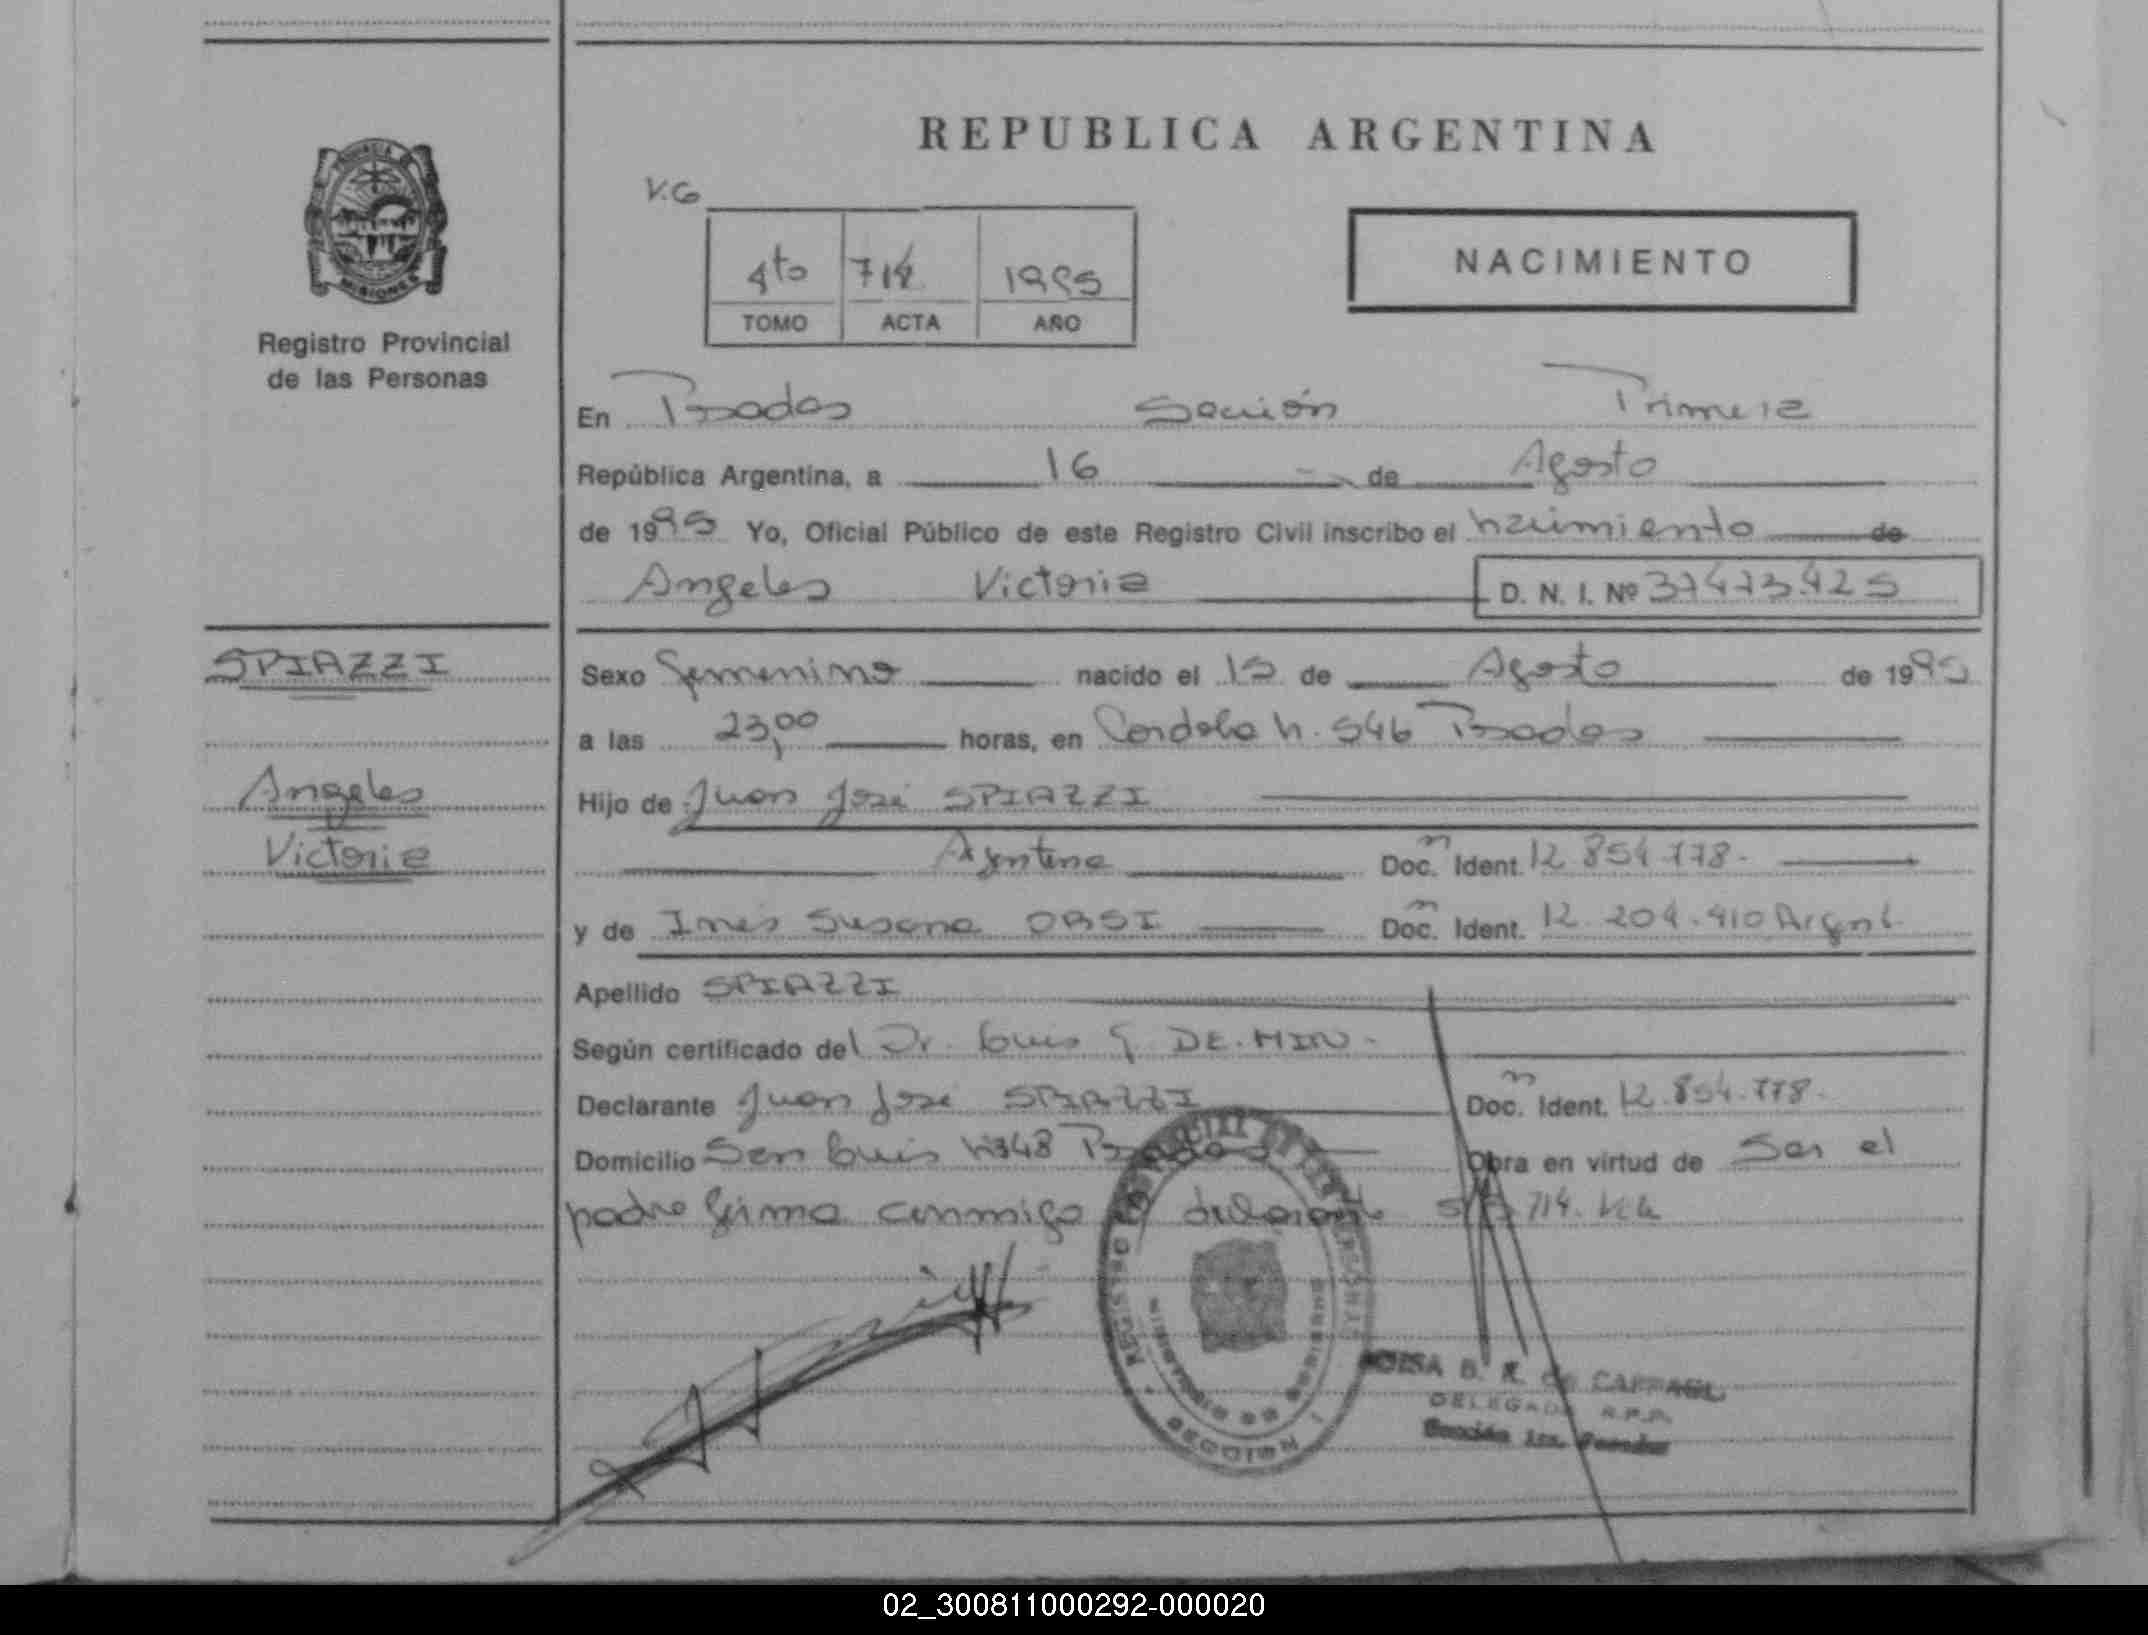 REPUBLICA ARGENTINA
V.G
4to 714 1995
TOMO ACTA AÑO
NACIMIENTO
PROVINCIA DE
MISIONES
Registro Provincial
de las Personas
En Posadas Sección Primera
República Argentina, a 16 de Agosto
de 1995 Yo, Oficial Público de este Registro Civil inscribo el nacimiento de
Angeles Victoria D. N. I. Nº
SPIAZZI
Angeles
Victoria
Sexo Femenino nacido el 15 de Agosto de 1995
a las 23,00 horas, en Cordoba n. 546 Posadas
Hijo de Juan José SPIAZZI
Argentina Doc. Ident. 12 854.778.
y de Ines Susana ORSI Doc. Ident. 12.204.410 Argent.
Apellido SPIAZZI
Según certificado del Dr. Luis G. DE. MIN.
Declarante Juan José SPIAZZI Doc. Ident. 12.854.778.
Domicilio San Luis n348 Posadas Obra en virtud de Ser el
padre firma conmigo 714. V.G
B. R. de CAFFAREL
DELEGADA R.P.P.
Sección 1ra. Posadas
SECCION
02_300811000292-000020